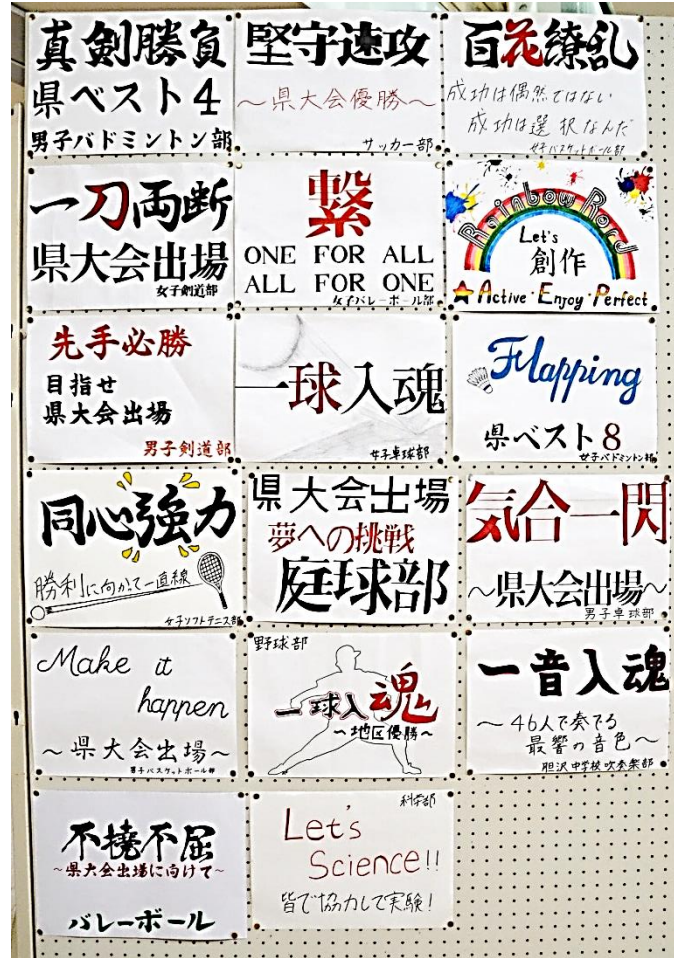 真剣勝負
県ベスト4
男子バドミントン部
堅守速攻
～県大会優勝～
サッカー部
百花繚乱
成功は偶然ではない
成功は選択なんだ
女子バスケットボール部
一刀両断
県大会出場
女子剣道部
繋
ONE FOR ALL
ALL FOR ONE
女子バレーボール部
Rainbow Rord
Let's
創作
★Active・Enjoy・Perfect
先手必勝
目指せ
県大会出場
男子剣道部
一球入魂
女子卓球部
Flapping
県ベスト8
女子バドミントン部
同心強力
勝利に向かって一直線
女子ソフトテニス部
県大会出場
夢への挑戦
庭球部
気合一閃
～県大会出場～
男子卓球部
Make it
happen
～県大会出場～
男子バスケットボール部
野球部
一球入魂
～地区優勝～
一音入魂
～46人で奏でる
最響の音色～
胆沢中学校吹奏楽部
不撓不屈
～県大会出場に向けて～
バレーボール
科学部
Let's
Science!!
皆で協力して実験!